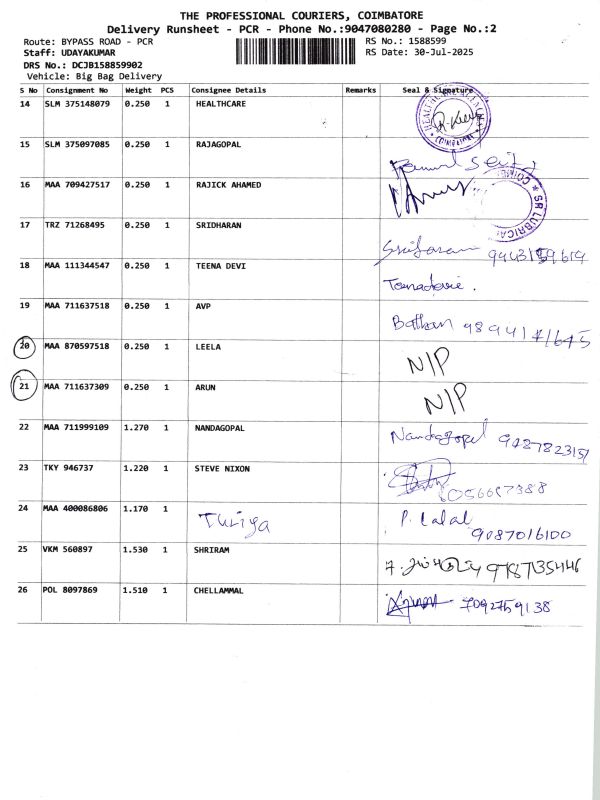 THE PROFESSIONAL COURIERS, COIMBATORE
Delivery Runsheet - PCR - Phone No.:9047080280 - Page No.:2
Route: BYPASS ROAD - PCR
RS No.: 1588599
Staff: UDAYAKUMAR
RS Date: 30-Jul-2025
DRS No.: DCJB158859902
Vehicle: Big Bag Delivery
S No Consignment No Weight PCS Consignee Details Remarks Seal & Signature
14 SLM 375148079 0.250 1 HEALTHCARE
COIMBATORE
15 SLM 375097085 0.250 1 RAJAGOPAL
16 MAA 709427517 0.250 1 RAJICK AHAMED
SR LUBRICA
17 TRZ 71268495 0.250 1 SRIDHARAN
18 MAA 111344547 0.250 1 TEENA DEVI
19 MAA 711637518 0.250 1 AVP
20 MAA 870597518 0.250 1 LEELA N/P
21 MAA 711637309 0.250 1 ARUN N/P
22 MAA 711999109 1.270 1 NANDAGOPAL Nandagopal
23 TKY 946737 1.220 1 STEVE NIXON
24 MAA 400086806 1.170 1 Thiriya P. Lalal 9087016100
25 VKM 560897 1.530 1 SHRIRAM 9787135446
26 POL 8097869 1.510 1 CHELLAMMAL 7092759138